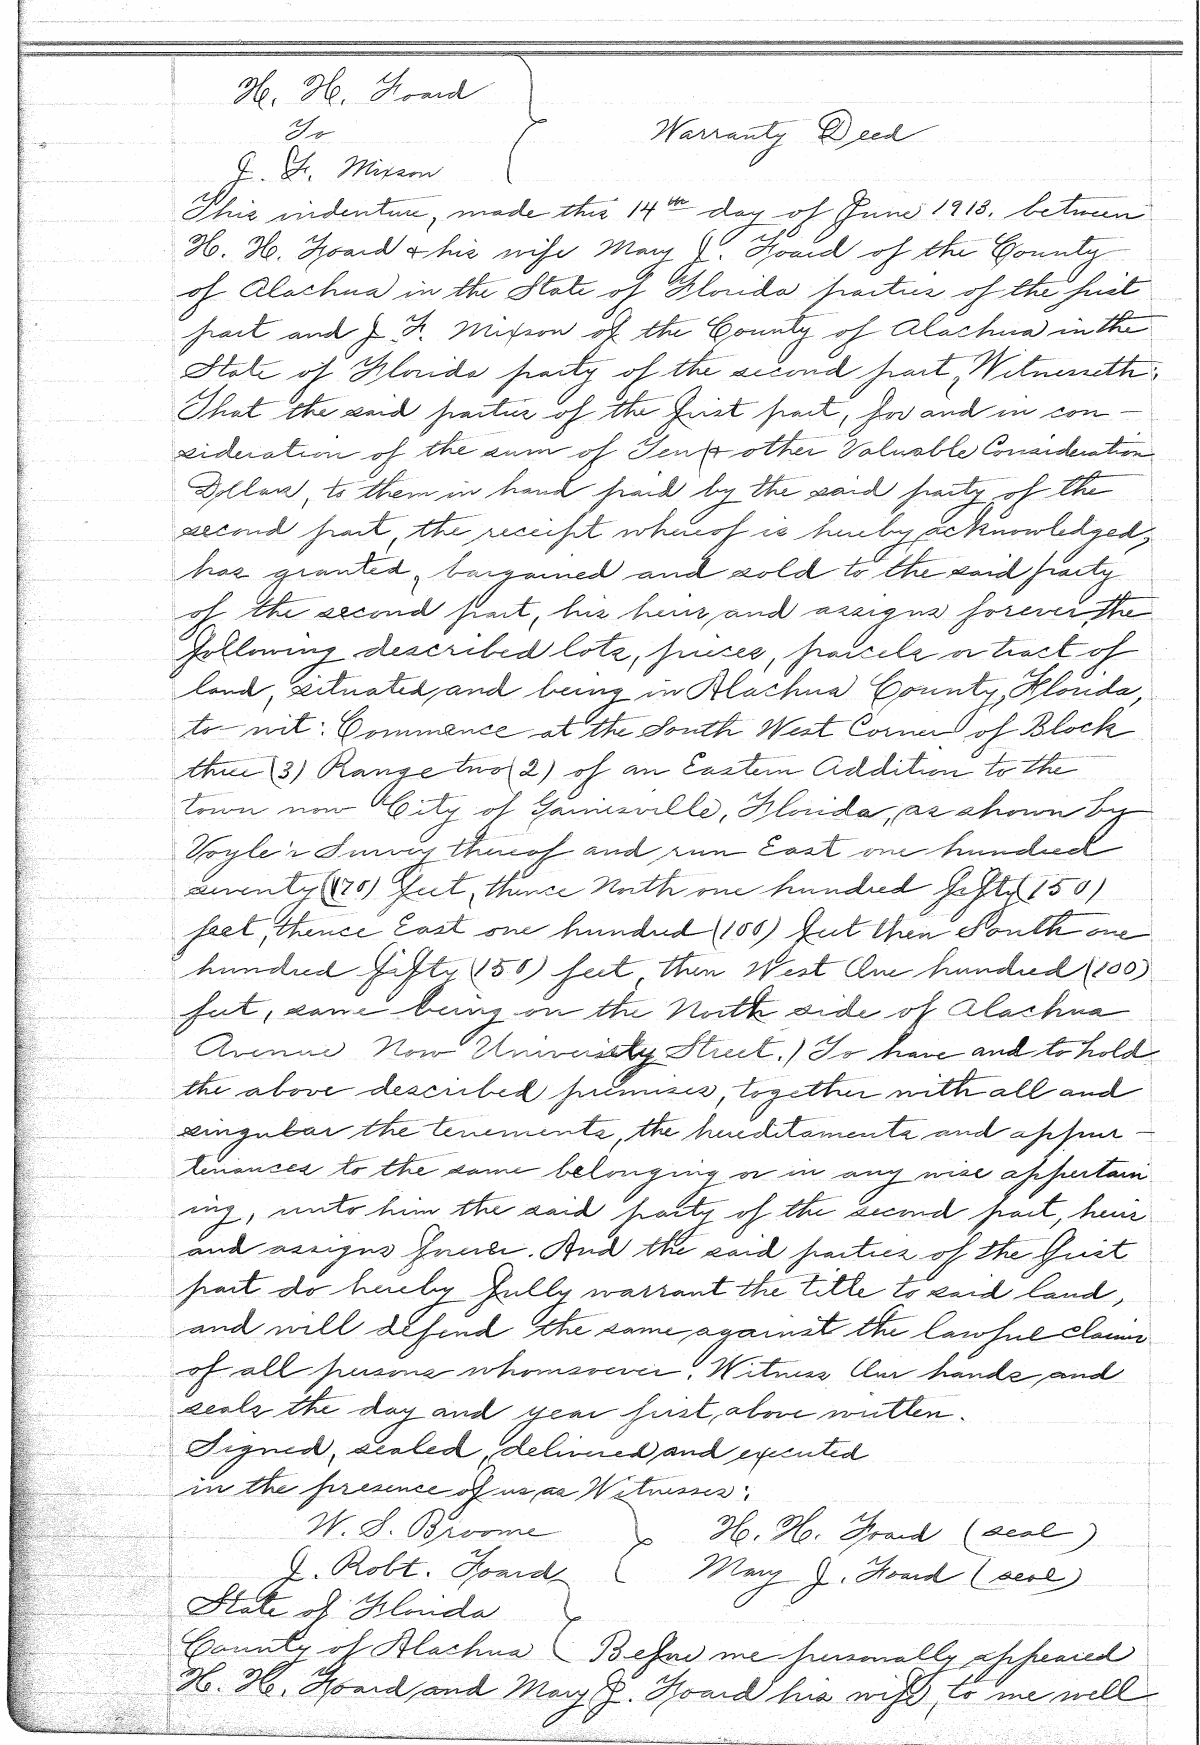 H. H. Foard
To
Warranty Deed
J. F. Mixson
This indenture, made this 14th day of June 1913. between
H. H. Foard & his wife Mary J. Foard of the County
of Alachua in the State of Florida parties of the first
part and J. F. Mixson of the County of Alachua in the
State of Florida party of the second part, Witnesseth;
That the said parties of the first part, for and in con-
sideration of the sum of Ten & other Valuable Consideration
Dollars, to them in hand paid by the said party of the
second part, the receipt whereof is hereby acknowledged,
has granted, bargained and sold to the said party
of the second part, his heirs, and assigns forever, the
following described lots, pieces, parcels or tract of
land, situated, and being in Alachua County, Florida,
to-wit: Commence at the South West Corner of Block
three (3) Range two (2) of an Eastern Addition to the
town now City of Gainesville, Florida, as shown by
Voyle's Survey thereof and run East one hundred
seventy (170) feet, thence North one hundred fifty (150)
feet, thence East one hundred (100) feet then South one
hundred fifty (150) feet, then West One hundred (100)
feet, same being on the North side of Alachua
Avenue Now University Street.) To have and to hold
the above described premises, together with all and
singular the tenements, the hereditaments and appur-
tenances to the same belonging or in any wise appertain
ing, unto him the said party of the second part, heirs
and assigns forever. And the said parties of the first
part do hereby fully warrant the title to said land,
and will defend the same, against the lawful claims
of all persons whomsoever. Witness Our hands, and
seals the day and year first, above written.
Signed, sealed, delivered, and executed
in the presence of us, as Witnesses:
W. S. Broome H. H. Foard (seal)
J. Robt. Foard Mary J. Foard (seal)
State of Florida
County of Alachua Before me personally appeared
H. H. Foard, and Mary J. Foard his wife, to me well